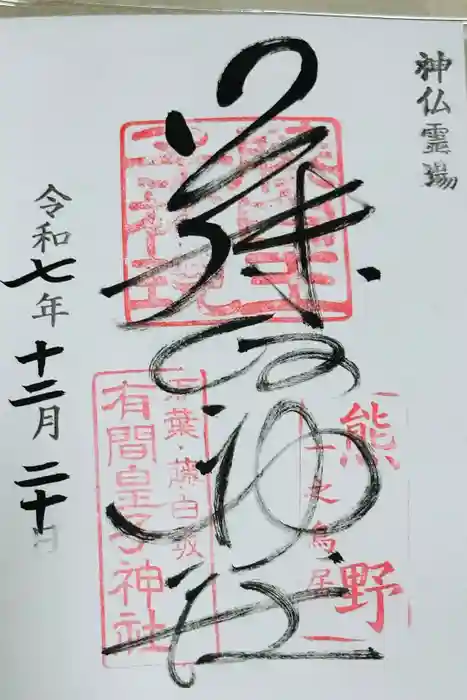 神仏霊場
藤白神社
熊野
一之鳥居
万葉・藤白坂
有間皇子神社
令和七年十二月二十日